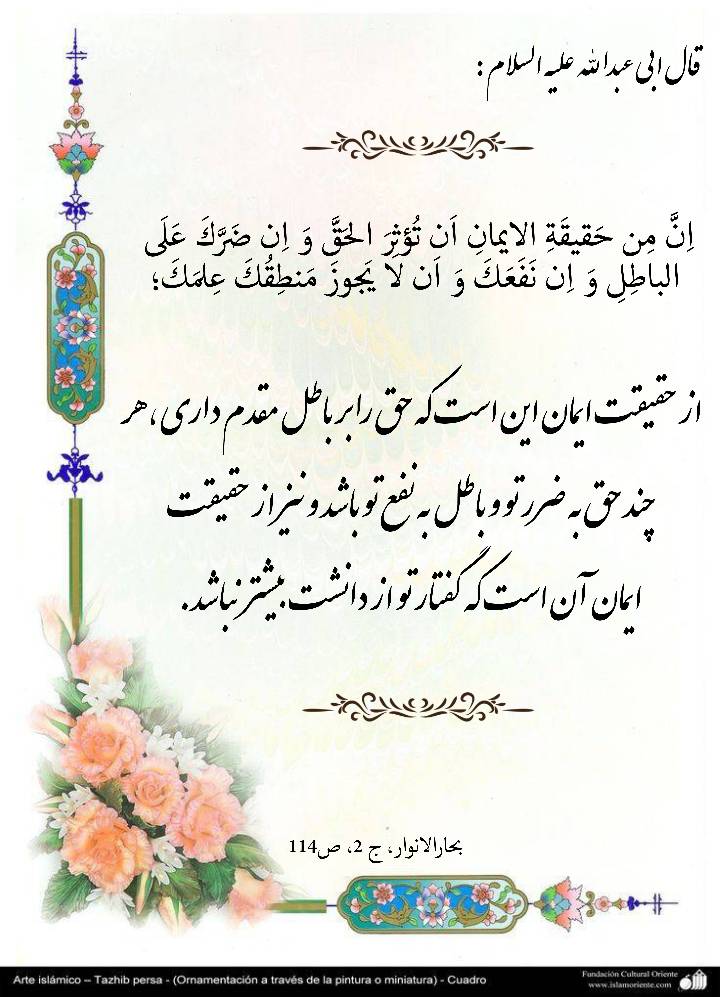 قال ابی عبدالله علیه السلام :
اِنَّ مِن حَقیقَةِ الایمانِ اَن تُؤثِرَ الحَقَّ وَ اِن ضَرَّكَ عَلَی
الباطِلِ وَ اِن نَفَعَكَ وَ اَن لا یَجوزَ مَنطِقُكَ عِلمَكَ؛
از حقیقت ایمان این است که حق را بر باطل مقدم داری، هر
چند حق به ضرر تو و باطل به نفع تو باشد و نیز از حقیقت
ایمان آن است که گفتار تو از دانشت بیشتر نباشد.
بحارالانوار، ج 2، ص114
Arte islámico – Tazhib persa - (Ornamentación a través de la pintura o miniatura) - Cuadro
Fundación Cultural Oriente
www.islamoriente.com